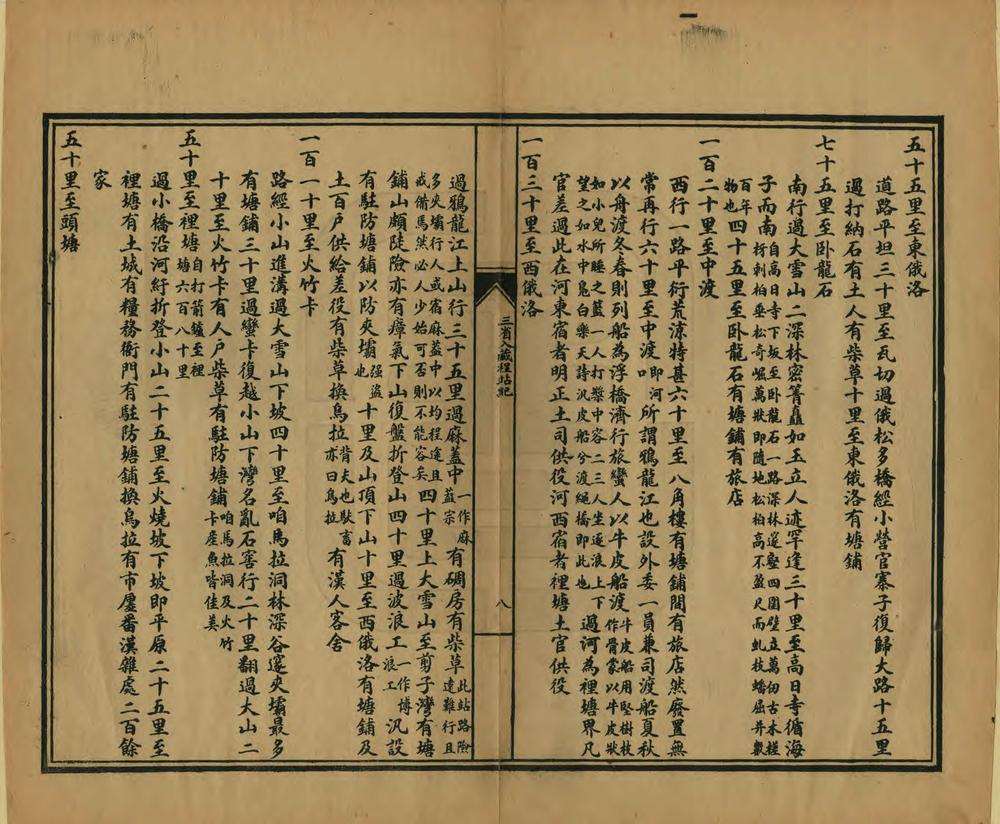 五十五里至東俄洛
道路平坦三十里至瓦切過俄松多橋經小營官寨子復歸大路十五里
過打納石有土人有柴草十里至東俄洛有塘鋪
七十五里至卧龍石
南行過大雪山二深林密箐矗如玉立人迹罕逢三十里至高日寺循海
子而南南自高日寺下坂至卧龍石一路深林邃壑四圍壁立萬仞古木槎枒刺柏垂松奇崛萬狀即隨地松柏高不盈尺而虬枝蟠屈并數百年物也四十五里至卧龍石有塘鋪有旅店
一百二十里至中渡
西行一路平衍荒涼特甚六十里至八角樓有塘鋪間有旅店然廢置無
常再行六十里至中渡即河口所謂鴉龍江也設外委一員兼司渡船夏秋
以舟渡冬春則列船為浮橋濟行旅蠻人以牛皮船渡牛皮船用堅樹枝作骨蒙以牛皮狀
如小兒所睡之籃一人打槳中容二三人坐逐浪上下望之如水中鳧白樂天詩汎皮船兮渡繩橋即此也過河為裡塘界凡
官差過此在河東宿者明正土司供役河西宿者裡塘土官供役
一百三十里至西俄洛
三省入藏程站紀
八
過鴉龍江上山行三十五里過麻蓋中一作麻蓋宗有碉房有柴草此站路險遠難行且
多夾壩行人或宿麻蓋中以均程途且戒備馬然必人少始可否則不能容矣四十里上大雪山至剪子灣有塘
鋪山頗陡險亦有瘴氣下山復盤折登山四十里過波浪工一作博浪工汛設
有駐防塘鋪以防夾壩强盜也十里及山頂下山十里至西俄洛有塘鋪及
土百戶供給差役有柴草換烏拉背夫也馱畜亦曰烏拉有漢人客舍
一百一十里至火竹卡
路經小山進溝過大雪山下坡四十里至咱馬拉洞林深谷邃夾壩最多
有塘鋪三十里過蠻卡復越小山下灣名亂石窖行二十里翻過大山二
十里至火竹卡有人戶柴草有駐防塘鋪咱馬拉洞及火竹卡産魚皆佳美
五十里至裡塘自打箭鑪至裡塘六百八十里
過小橋沿河紆折登小山二十五里至火燒坡下坡即平原二十五里至
裡塘有土城有糧務衙門有駐防塘鋪換烏拉有市廛番漢雜處二百餘
家
五十里至頭塘